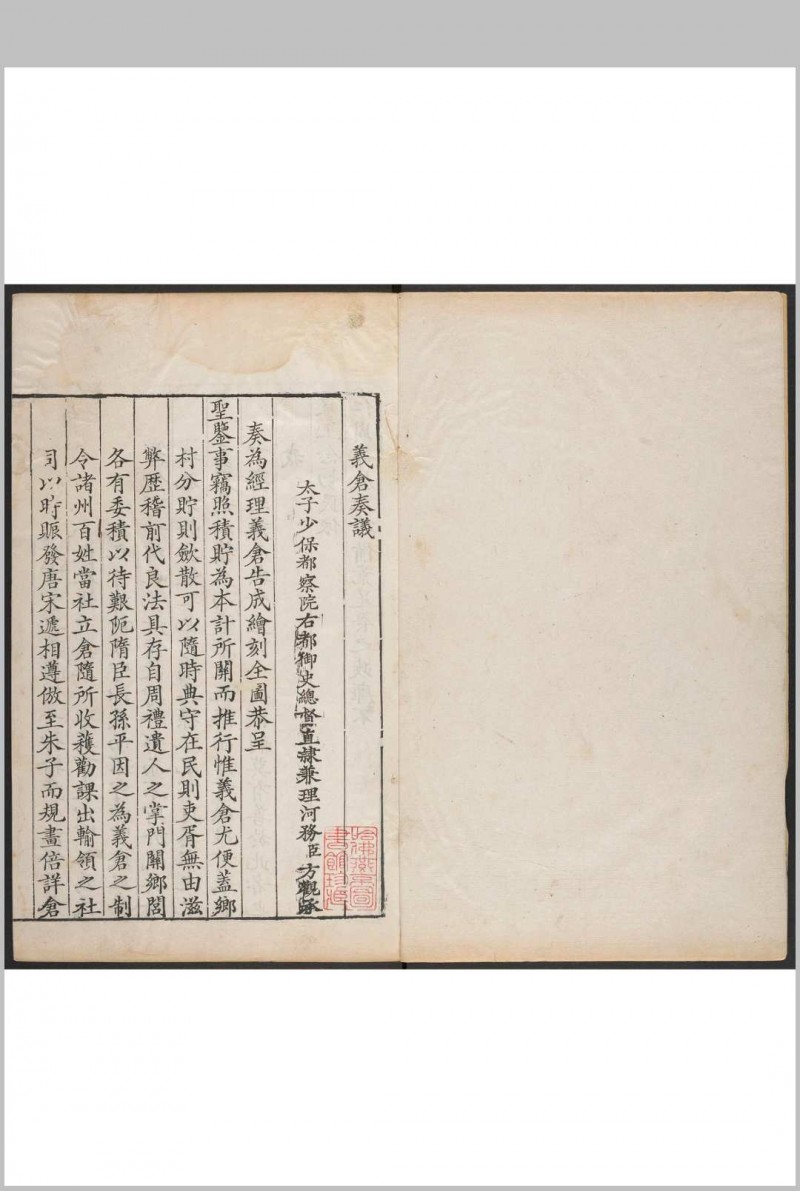 義倉奏議
太子少保都察院右都御史總督直隷兼理河務臣方觀承
奏為經理義倉告成繪刻全圖恭呈
聖鑒事竊照積貯為本計所關而推行惟義倉尤便蓋鄉
村分貯則歛散可以隨時典守在民則吏胥無由滋
弊歷稽前代良法具存自周禮遺人之掌門關鄉閭
各有委積以待艱阨隋臣長孫平因之為義倉之制
令諸州百姓當社立倉隨所收穫勸課出輸領之社
司以時賑發唐宋遞相遵倣至朱子而規畫倍詳倉
哈佛燕京圖書館珍藏